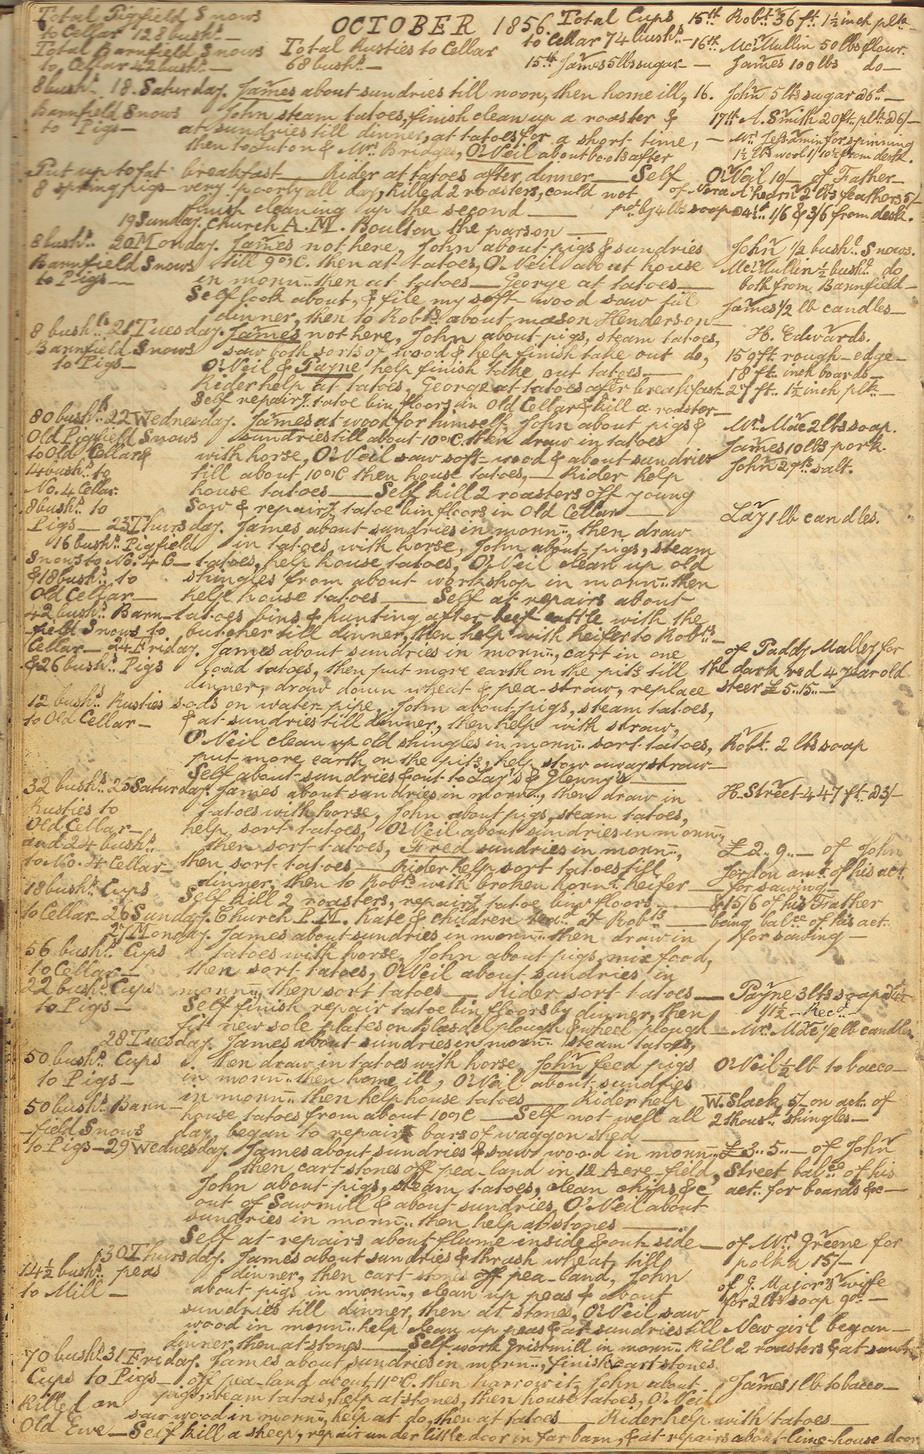 Total Pigfield Snows OCTOBER 1856. Total Cups 15th Robt. 36 ft. 1½ inch plk
to Cellar 128 bushs. — to Cellar 74 bushs. — 16th. McMullin 50 lbs flour.
Total Barnfield Snows Total Rusties to Cellar
to Cellar 42 bushs. — 68 bushs. — 15th James 5 lbs sugar — James 100 lbs do —
8 bushs. 18. Saturday. James about sundries till noon, then home ill, 16. John 5 lbs sugar
Barnfield Snows John steam tatoes, finish clean up a roaster & 17th A. Smith 20 ft. plk
to Pigs — at sundries till dinner, at tatoes for a short time, — Mrs. for spinning
then to Sutton & Mr. Bridges, O'Neil about boots after 1½ lbs wool 1/10½ from desk.
Put up to fat breakfast — Rider at tatoes after dinner — Self O'Neil 10/— of Father —
8 spring pigs — very poorly all day, killed 2 roasters, could not of Nora Ahearn 2 lbs feathers 5/
finish cleaning up the second — pd. by 4 lbs soap 1/6 & 3/6 from desk.
19 Sunday. Church A.M. Boulton the parson —
8 bushs. 20 Monday. James not here, John about pigs & sundries John ½ bushl. Snows.
Barnfield Snows till 9 o'C. then at tatoes, O'Neil about house McMullin ½ bushl. do
to Pigs — in mornn.. then at tatoes — George at tatoes — both from Barnfield —
Self look about, & file my soft-wood saw till James ½ lb candles —
dinner, then to Robts about mason Henderson —
8 bushls 21 Tuesday. James not here, John about pigs, steam tatoes, H. Edwards.
Barnfield Snows saw both sorts of wood & help finish take out do, 159 ft. rough-edge —
to Pigs — O'Neil & Payne help finish take out tatoes — 18 ft. inch boards —
Rider help at tatoes, George at tatoes after breakfast — 27 ft. 1½ inch plk —
Self repairg. tatoe bin floors in Old Cellar & kill a roaster —
80 bushs. 22 Wednesday. James at wood for himself, John about pigs & Mrs. Moté 2 lbs soap.
Old Pigfield Snows sundries till about 10 o'C. then draw in tatoes James 10 lbs pork.
to Old Cellar & with horse, O'Neil saw soft-wood & about sundries John 2 qts. salt.
14 bushs. to till about 10 o'C then house tatoes, — Rider help
No. 4 Cellar. house tatoes — Self kill 2 roasters off young
8 bushs. to Sow & repairg. tatoe bin floors in Old Cellar — Lazr. 1 lb candles.
Pigs — 23 Thursday. James about sundries in mornn.., then draw
16 bushs. Pigfield in tatoes with horse, John about pigs, steam
Snows to No. 4 C — tatoes, help house tatoes, O'Neil clean up old
& 18 bushs. to shingles from about workshop in mornn.. then
Old Cellar — help house tatoes — Self at repairs about
42 bushs. Barn — tatoes bins & hunting after beef cattle with the
—field Snows to butcher till dinner, then help with heifer to Robts —
Cellar — 24 Friday. James about sundries in mornn.., cart in one of Paddy Malley for
& 26 bushs. Pigs load tatoes, then put more earth on the pits till the dark red 4 year old
dinner, draw down wheat & pea-straw, replace steer £5..5..—
12 bushs. Rusties sods on water pipe, John about pigs, steam tatoes,
to Old Cellar — & at sundries till dinner, then help with straw,
O'Neil clean up old shingles in mornn.. sort tatoes, Robt. 2 lbs soap
put more earth on the pits, help stow away straw —
Self about sundries & out to Clay's & Glenny's —
32 bushs. 25 Saturday. James about sundries in mornn.., then draw in H. Street 447 ft.
Rusties to tatoes with horse, John about pigs, steam tatoes,
Old Cellar — help sort tatoes, O'Neil about sundries in mornn..
and 24 bushs. then sort tatoes, Fred sundries in mornn.., £2..9..— of John
to No. 4 Cellar — then sort tatoes — Rider help sort tatoes till Jordon amt. of his act.
18 bushs. Cups dinner, then to Robts with broken hornd. heifer — for sawing —
to Cellar. Self kill 2 roasters, repairg. tatoe bin floors — & 15/6 of his Father
26 Sunday. Church P.M. Kate & children at Robts — being balce. of his act.
27 Monday. James about sundries in mornn.. then draw in for sawing —
56 bushs. Cups tatoes with horse, John about pigs, mix food,
to Cellar — then sort tatoes, O'Neil about sundries in
22 bushs. Cups mornn.., then sort tatoes — Rider sort tatoes — Payne 3 lbs soap
to Pigs — Self finish repair tatoe bin floors by dinner, then 1/1½ — Recd. —
fit new sole plates on plough & wheel plough — Mrs. Moté ½ lb candles
28 Tuesday. James about sundries in mornn.. steam tatoes,
50 bushs. Cups then draw in tatoes with horse, John feed pigs O'Neil ½ lb tobacco —
to Pigs — in mornn.. then home ill, O'Neil about sundries
50 bushs. Barn— in mornn.. then help house tatoes — Rider help W. Slack 5/ on act. of
—field Snows house tatoes from about 10 o'C — Self not well all 2 thousd. shingles —
to Pigs — day, began to repair bars of waggon shed —
29 Wednesday. James about sundries & saw wood in mornn.. £3..5..— of John
then cart stones off pea-land in 12 Acre-field, Street balce. of his
John about pigs, steam tatoes, clean chips &c act. for boards &c —
out of Sawmill & about sundries, O'Neil about
sundries in mornn.. then help at stones —
Self at repairs about flume inside & outside — of Mrs. Greene for
30 Thursday. James about sundries & thrash wheat, till polka 15/—
14½ bushs. peas dinner, then cart stones off pea-land, John
to Mill — about pigs in mornn.., clean up peas & about of J. Major's wife
sundries till dinner, then at stones, O'Neil saw for 2 lbs soap 9d. —
wood in mornn.. help clean up peas & at sundries till New girl began —
dinner, then at stones — Self work Gristmill in mornn.. kill 2 roasters & at sundrs.
70 bushs. 31 Friday. James about sundries in mornn.., finish cart stones
Cups to Pigs — off pea-land about 11 o'C. then harrow it, John about James 1 lb tobacco —
Killed an pigs, steam tatoes, help at stones, then house tatoes, O'Neil
Old Ewe — saw wood in mornn.., help at do, then at tatoes — Rider help with tatoes —
Self kill a sheep, repair under little door in far barn, & at repairs about lime-house door